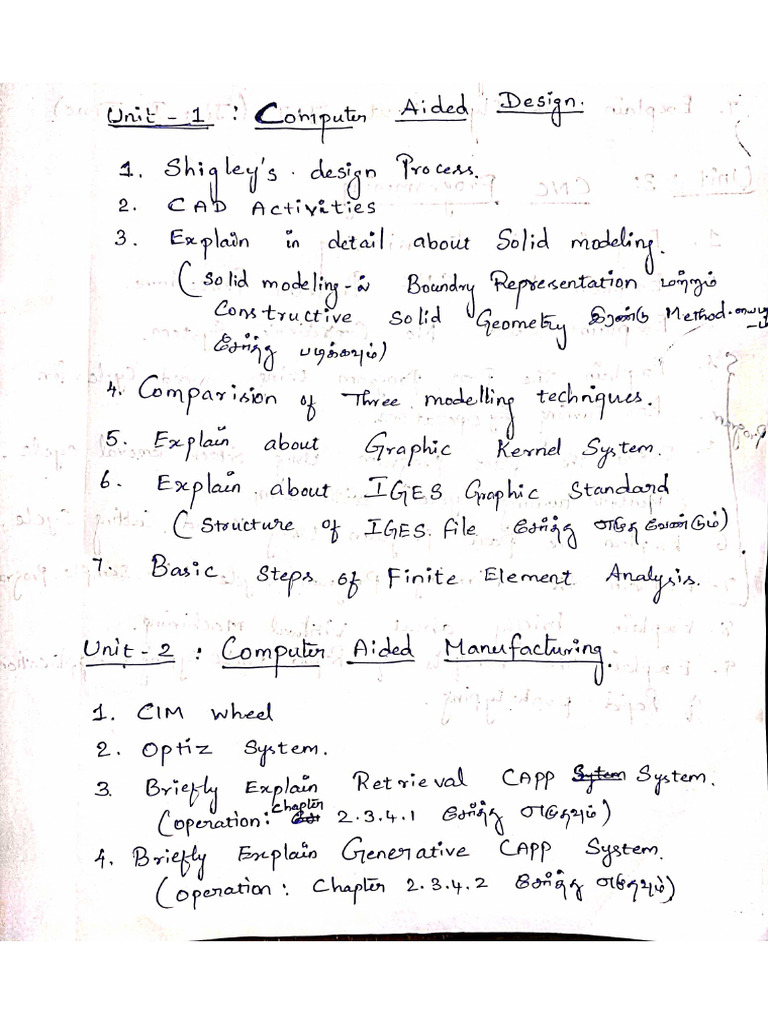 Unit - 1 : Computer Aided Design.
1. Shigley's design Process.
2. CAD Activities
3. Explain in detail about Solid modeling.
(Solid modeling-ல் Boundry Representation மற்றும்
Constructive Solid Geometry இரண்டு Method-யை
சேர்த்து படிக்கவும்)
4. Comparision of Three modelling techniques.
5. Explain about Graphic Kernel System.
6. Explain about IGES Graphic Standard
(Structure of IGES file சேர்த்து எழுத வேண்டும்)
7. Basic Steps of Finite Element Analysis.
Unit - 2 : Computer Aided Manufacturing.
1. CIM wheel
2. Optiz System.
3. Briefly Explain Retrieval CAPP System.
(operation: Chapter 2.3.4.1 சேர்த்து எழுதவும்)
4. Briefly Explain Generative CAPP System.
(operation: Chapter 2.3.4.2 சேர்த்து எழுதவும்)